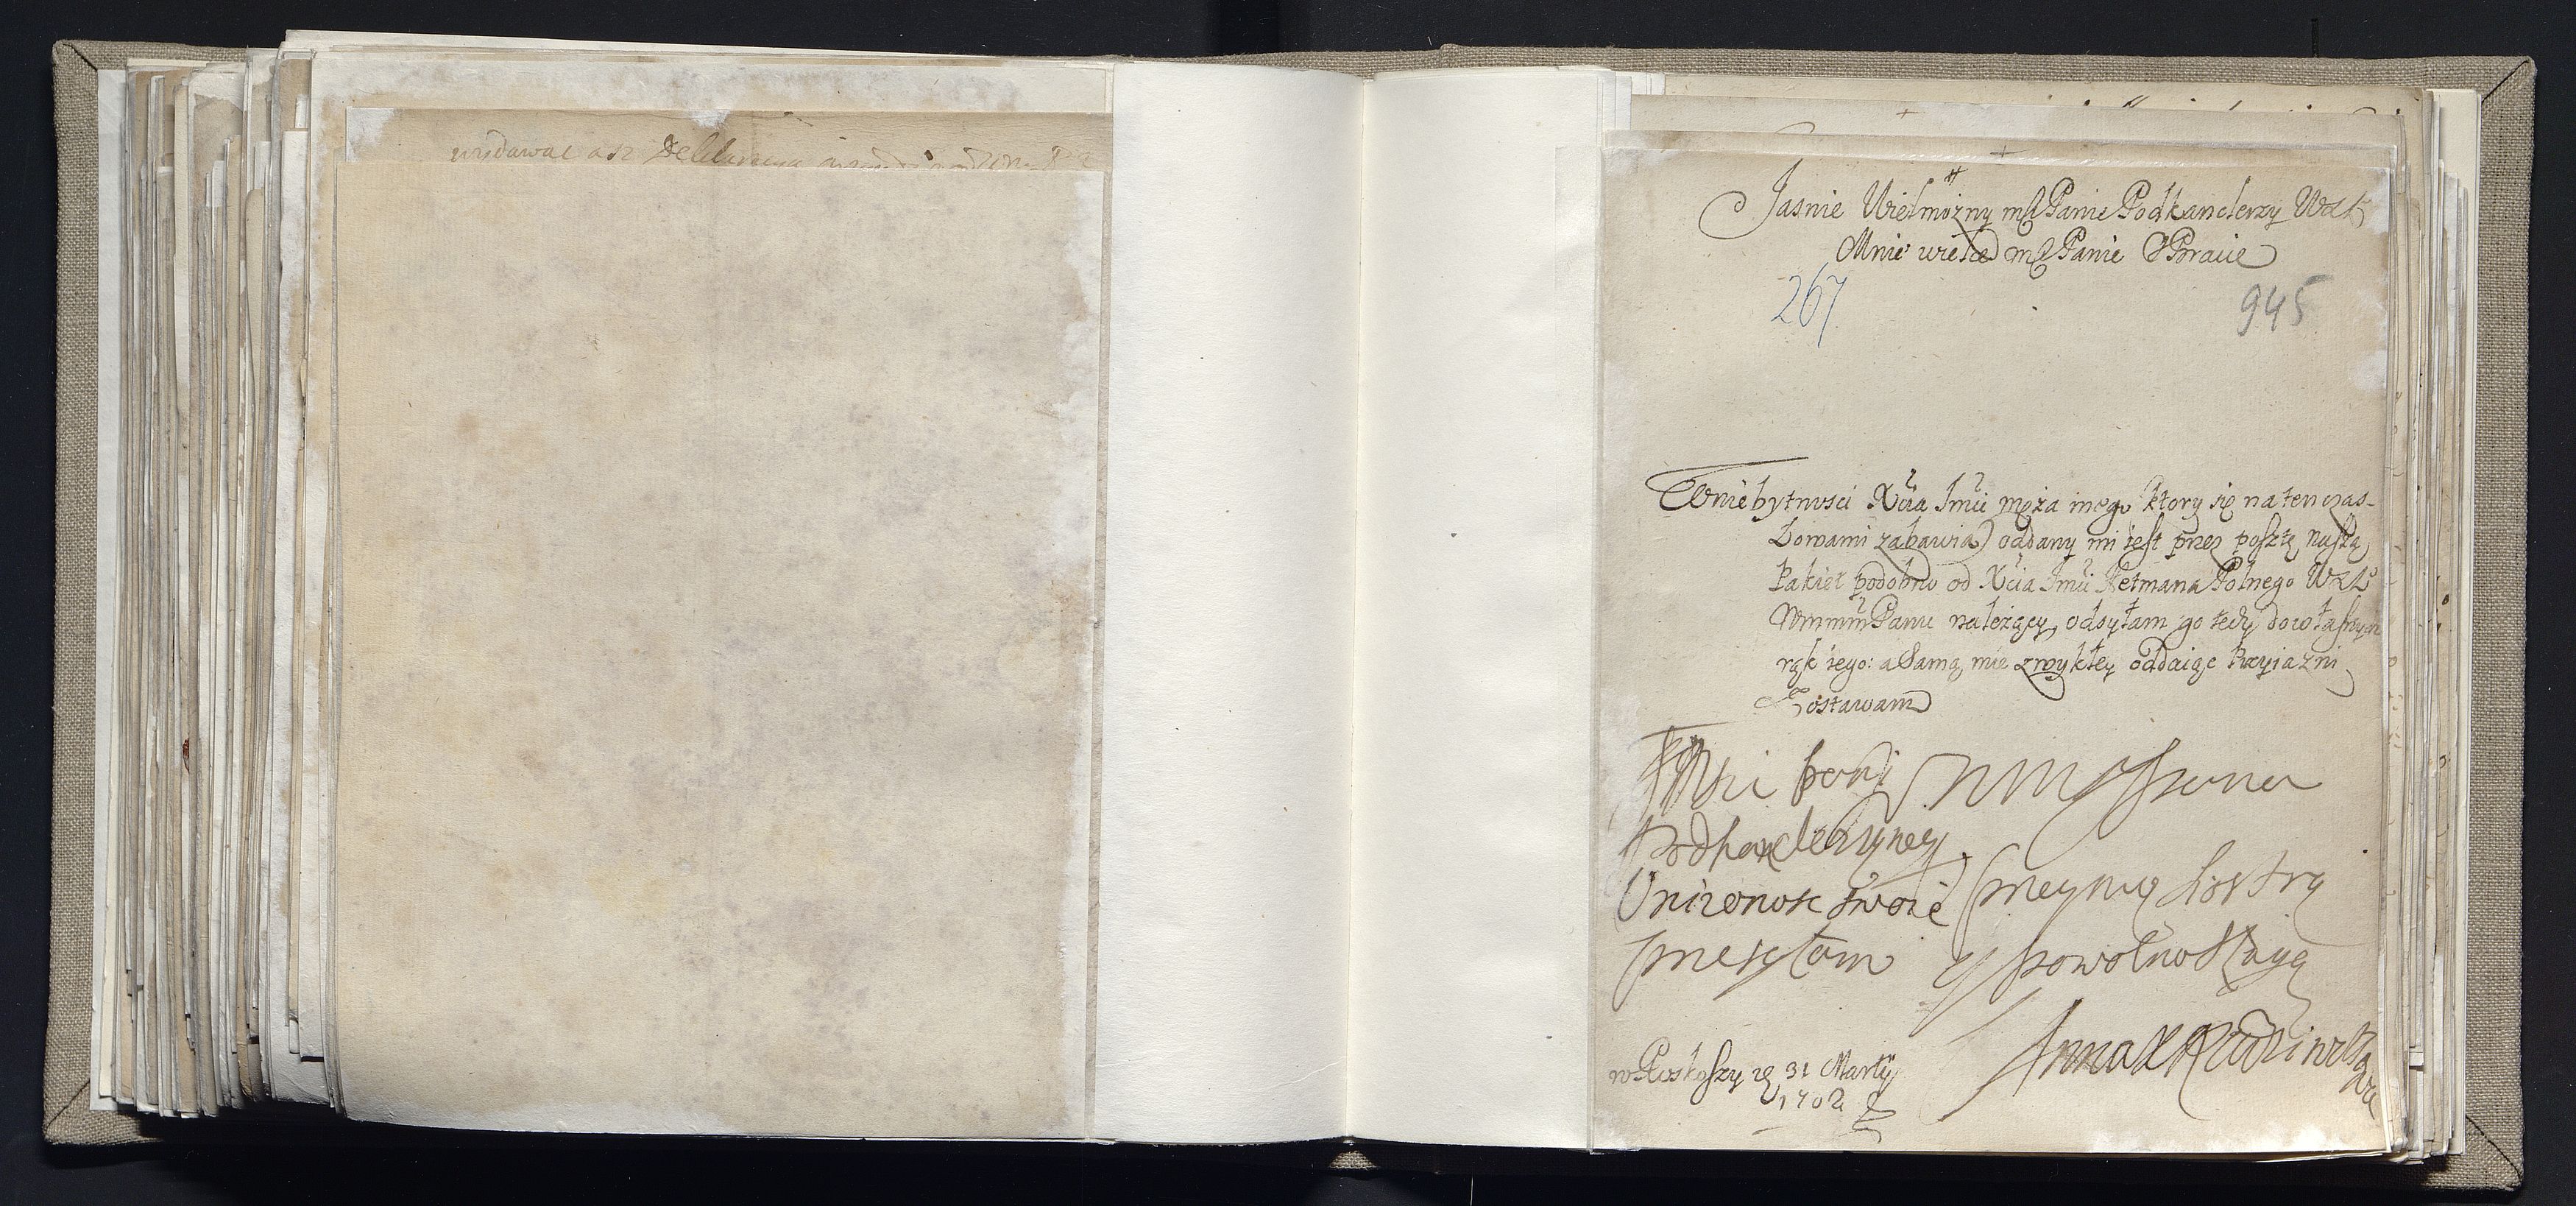 wydawac asz
Jasnie Wielmożny mśi Panie Podkanclerzy WXL
Mnie wielce mśi Panie y Bracie
267
945
W niebytnosci Xcia Imci męża mego ktory się na ten czas
Łowami zabawia oddany mi iest przez posztę naszą
Pakiet podobno od Xcia Imci Hetmana Polnego WXL
Wmmm Panu należący, odsyłam go tedy do własnych
rąk iego: a Samą mie zwykłey oddaiąc Przyiazni
Zostawam
Imci pani
WMM Pana
Podkanclerzyney
Unizonosc swoię
zyczliwą siostrą
przesyłam
y powolną sługą
Anna X Radziwiłowa
w Roskoszy 31 Martij
1702